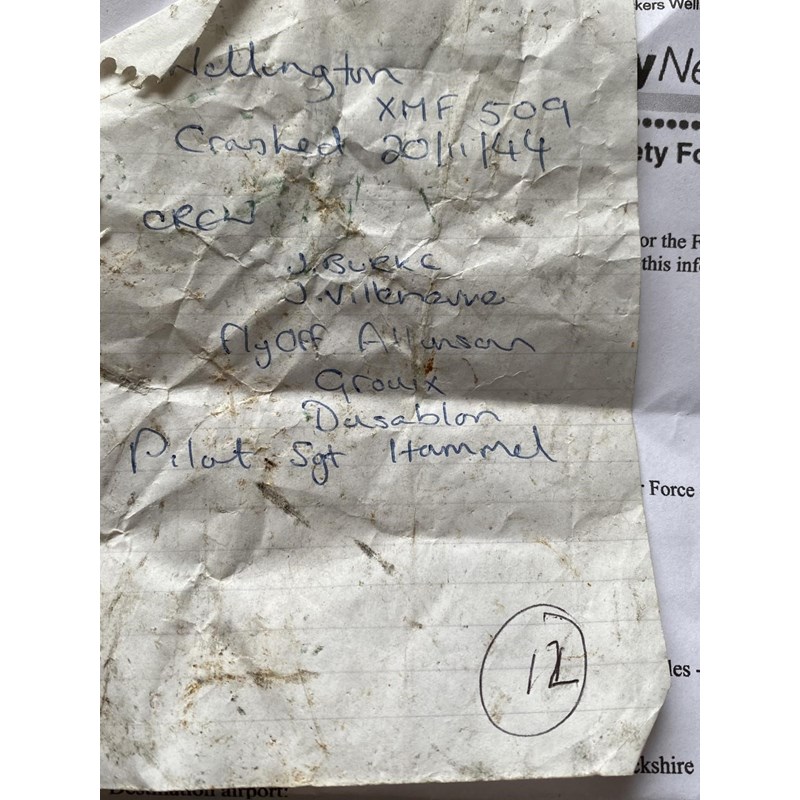 kers Well
yNe
Wellington
XMF 509
ety Fo
Crashed 20/11/44
CREW
or the F
this inf
J. Burke
J. Villeneuve
Fly Off Allinson
Groulx
Dusablon
Pilot Sgt Hammel
Force
12
les -
kshire
Destination airport: